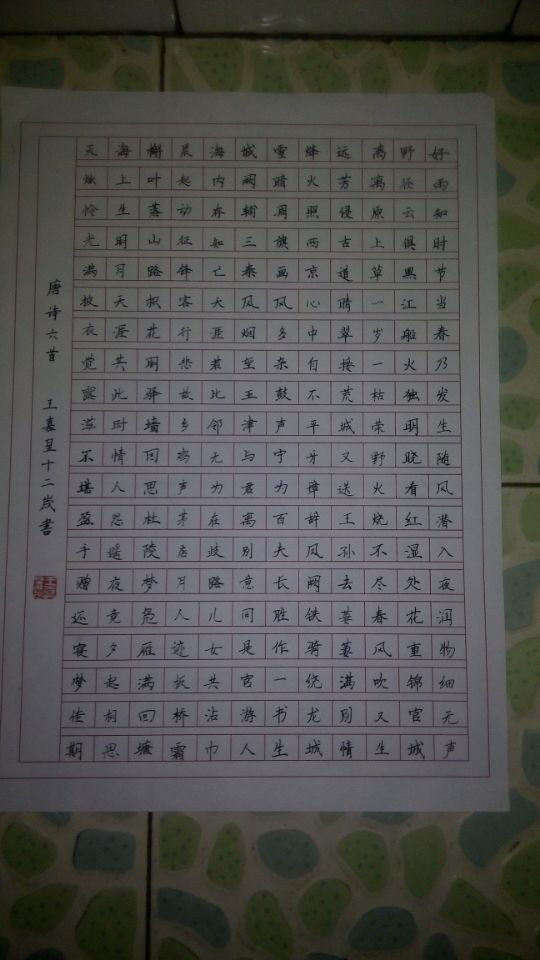 好雨知时节当春乃发生随风潜入夜润物细无声
野径云俱黑江船火独明晓看红湿处花重锦官城
离离原上草一岁一枯荣野火烧不尽春风吹又生
远芳侵古道晴翠接荒城又送王孙去萋萋满别情
烽火照西京心中自不平牙璋辞凤阙铁骑绕龙城
雪暗凋旗画风多杂鼓声宁为百夫长胜作一书生
城阙辅三秦风烟望五津与君离别意同是宦游人
海内存知己天涯若比邻无为在歧路儿女共沾巾
晨起动征铎客行悲故乡鸡声茅店月人迹板桥霜
槲叶落山路枳花明驿墙因思杜陵梦凫雁满回塘
海上生明月天涯共此时情人怨遥夜竟夕起相思
灭烛怜光满披衣觉露滋不堪盈手赠还寝梦佳期
唐诗六首 王嘉呈十二岁书